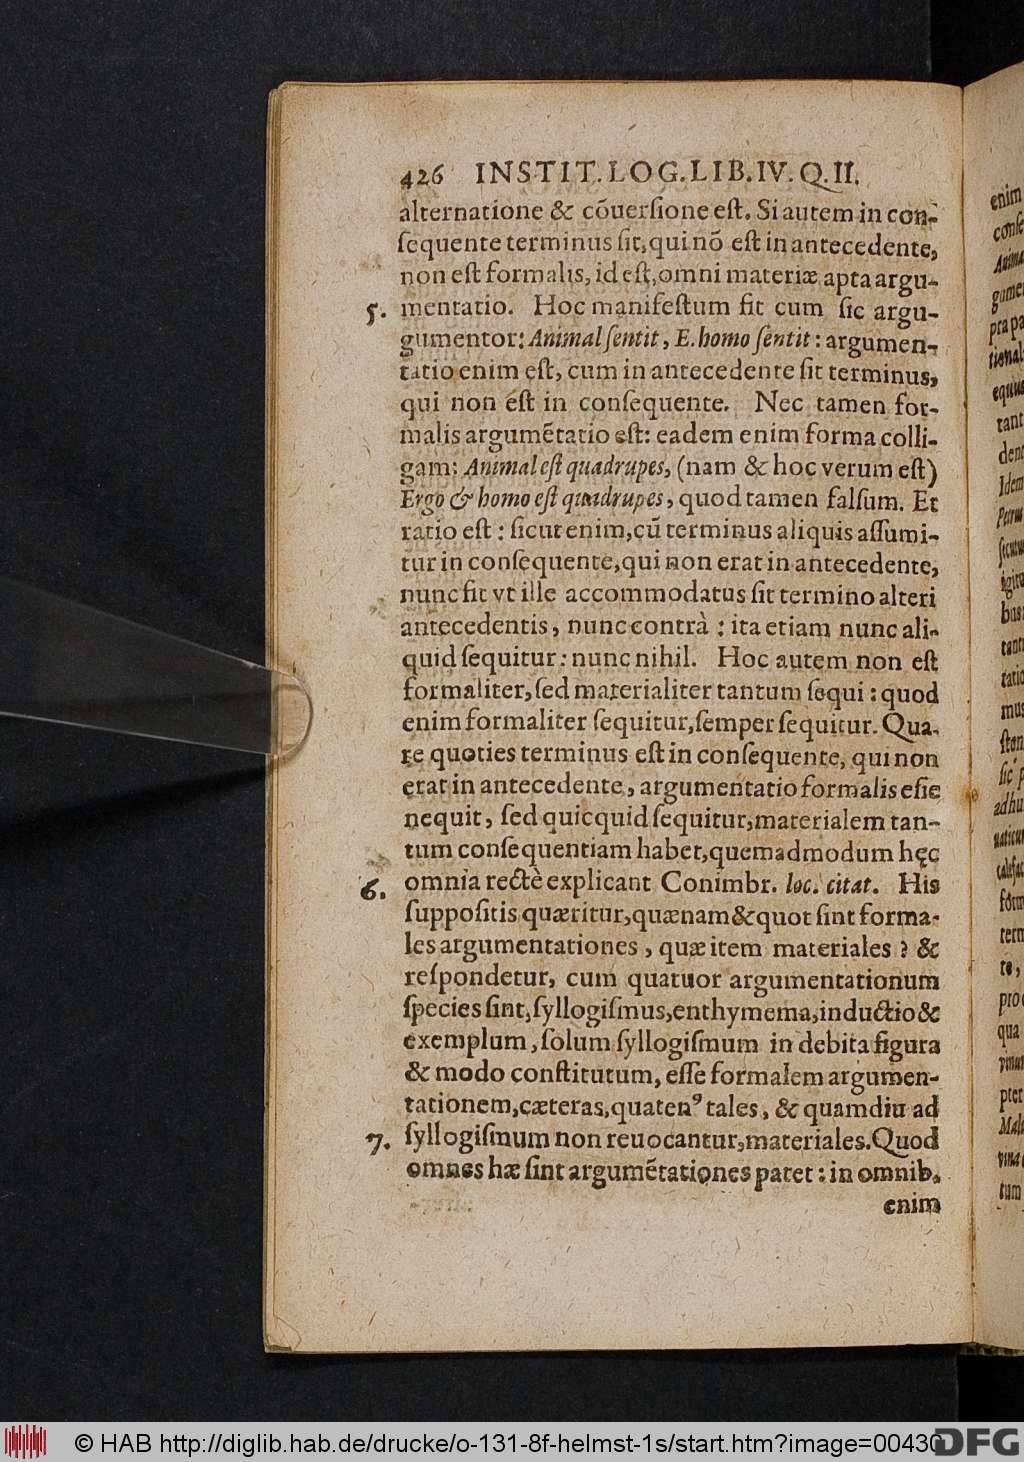 426 INSTIT. LOG. LIB. IV. Q. II.
alternatione & cõuerſione eſt. Si autem in con-
ſequente terminus ſit, qui nõ eſt in antecedente,
non eſt formalis, id eſt, omni materiæ apta argu-
5. mentatio. Hoc manifeſtum fit cum ſic argu-
gumentor: Animal ſentit, E. homo ſentit: argumen-
tatio enim eſt, cum in antecedente ſit terminus,
qui non eſt in conſequente. Nec tamen for-
malis argumẽtatio eſt: eadem enim forma colli-
gam: Animal eſt quadrupes, (nam & hoc verum eſt)
Ergo & homo eſt quadrupes, quod tamen falſum. Et
ratio eſt: ſicut enim, cũ terminus aliquis aſſumi-
tur in conſequente, qui non erat in antecedente,
nunc fit vt ille accommodatus ſit termino alteri
antecedentis, nunc contrà: ita etiam nunc ali-
quid ſequitur: nunc nihil. Hoc autem non eſt
formaliter, ſed materialiter tantum ſequi: quod
enim formaliter ſequitur, ſemper ſequitur. Qua-
re quoties terminus eſt in conſequente, qui non
erat in antecedente, argumentatio formalis eſſe
nequit, ſed quicquid ſequitur, materialem tan-
tum conſequentiam habet, quemadmodum hęc
6. omnia rectè explicant Conimbr. loc. citat. His
ſuppoſitis quæritur, quænam & quot ſint forma-
les argumentationes, quæ item materiales? &
reſpondetur, cum quatuor argumentationum
ſpecies ſint, ſyllogiſmus, enthymema, inductio &
exemplum, ſolum ſyllogiſmum in debita figura
& modo conſtitutum, eſſe formalem argumen-
tationem, cæteras, quatenꝰ tales, & quamdiu ad
7. ſyllogiſmum non reuocantur, materiales. Quod
omnes hæ ſint argumẽtationes patet: in omnib.
enim
enim
tant
© HAB http://diglib.hab.de/drucke/o-131-8f-helmst-1s/start.htm?image=00430
DFG